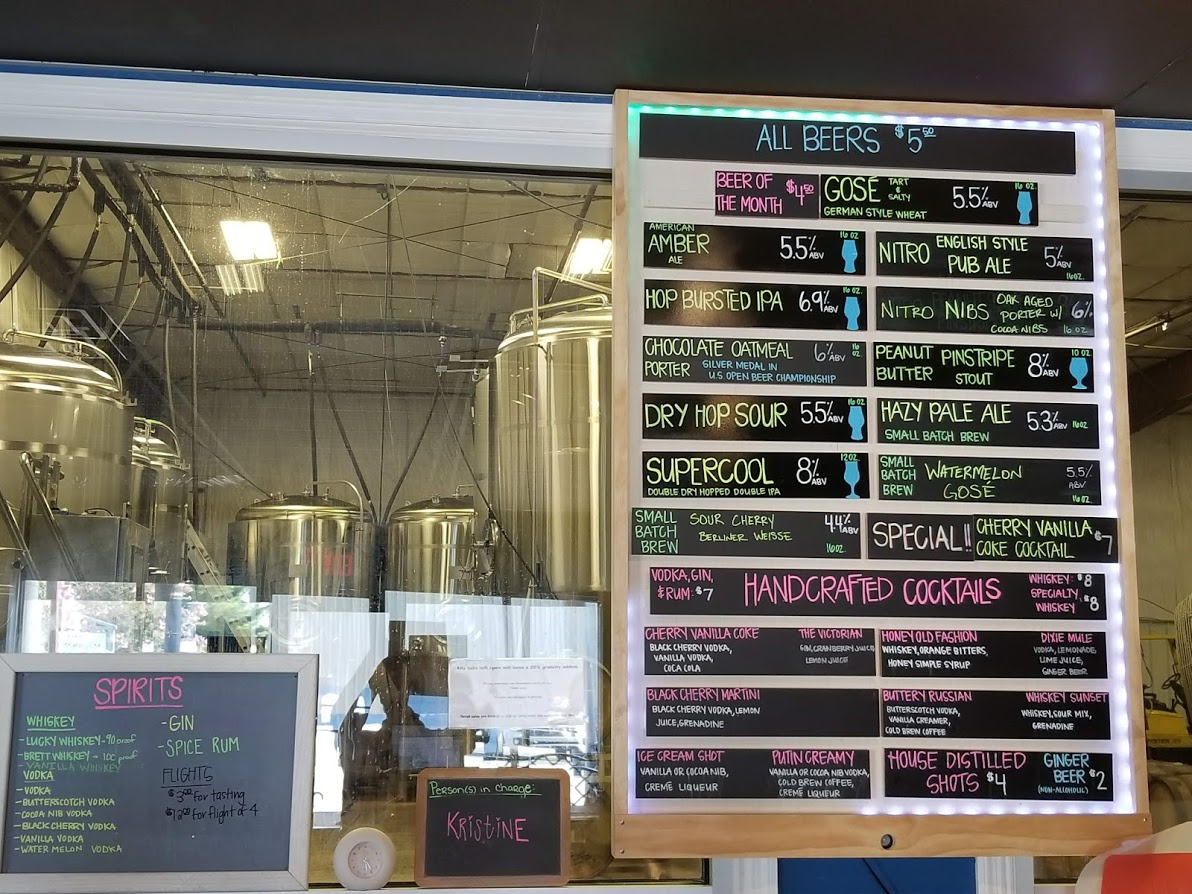 ALL BEERS $5.50
BEER OF
THE MONTH $4.50
GOSÉ TART & SALTY 5.5% ABV 16 OZ.
GERMAN STYLE WHEAT
AMERICAN
AMBER 5.5% ABV 16 OZ.
ALE
NITRO ENGLISH STYLE
PUB ALE 5% ABV 16 OZ.
HOP BURSTED IPA 6.9% ABV 16 OZ.
NITRO NIBS OAK AGED
PORTER W/ 6%
COCOA NIBS 16 OZ.
CHOCOLATE OATMEAL 6% ABV 16 OZ.
PORTER SILVER MEDAL IN
U.S. OPEN BEER CHAMPIONSHIP
PEANUT BUTTER PINSTRIPE
STOUT 8% ABV 10 OZ.
DRY HOP SOUR 5.5% ABV 16 OZ.
HAZY PALE ALE 5.3% ABV 16 OZ.
SMALL BATCH BREW
SUPERCOOL 8% ABV 12 OZ.
DOUBLE DRY HOPPED DOUBLE IPA
SMALL
BATCH
BREW
WATERMELON
GOSÉ
5.5%
ABV
16 OZ.
SMALL
BATCH
BREW
SOUR CHERRY
BERLINER WEISSE
4.4% ABV
16 OZ.
SPECIAL!!
CHERRY VANILLA
COKE COCKTAIL $7
VODKA, GIN,
& RUM: $7
HANDCRAFTED COCKTAILS
WHISKEY: $8
SPECIALTY
WHISKEY $8
CHERRY VANILLA COKE
BLACK CHERRY VODKA,
VANILLA VODKA,
COCA COLA
THE VICTORIAN
GIN, CRANBERRY JUICE,
LEMON JUICE
HONEY OLD FASHION
WHISKEY, ORANGE BITTERS,
HONEY SIMPLE SYRUP
DIXIE MULE
VODKA, LEMONADE,
LIME JUICE,
GINGER BEER
BLACK CHERRY MARTINI
BLACK CHERRY VODKA, LEMON
JUICE, GRENADINE
BUTTERY RUSSIAN
BUTTERSCOTCH VODKA,
VANILLA CREAMER,
COLD BREW COFFEE
WHISKEY SUNSET
WHISKEY, SOUR MIX,
GRENADINE
ICE CREAM SHOT
VANILLA OR COCOA NIB,
CREME LIQUEUR
PUTIN CREAMY
VANILLA OR COCOA NIB VODKA,
COLD BREW COFFEE,
CREME LIQUEUR
HOUSE DISTILLED
SHOTS $4
GINGER
BEER $2
(NON-ALCOHOLIC)
SPIRITS
WHISKEY
- LUCKY WHISKEY - 90 proof
- BRETT WHISKEY - 100 proof
- VANILLA WHISKEY
VODKA
- VODKA
- BUTTERSCOTCH VODKA
- COCOA NIB VODKA
- BLACK CHERRY VODKA
- VANILLA VODKA
- WATER MELON VODKA
- GIN
- SPICE RUM
FLIGHTS
$3.00 for tasting
$12.00 for flight of 4
Person(s) in charge:
KRISTINE